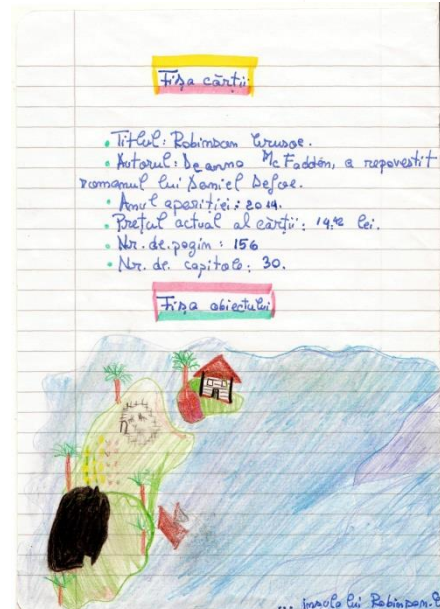 Fișa cărții
• Titlul: Robinson Crusoe.
• Autorul: Deanna McFadden, a repovestit
romanul lui Daniel Defoe.
• Anul apariției: 2014.
• Prețul actual al cărții: lei.
• Nr. de pagin: 156
• Nr. de capitole: 30.
Fișa obiectului
... insula lui Robinson